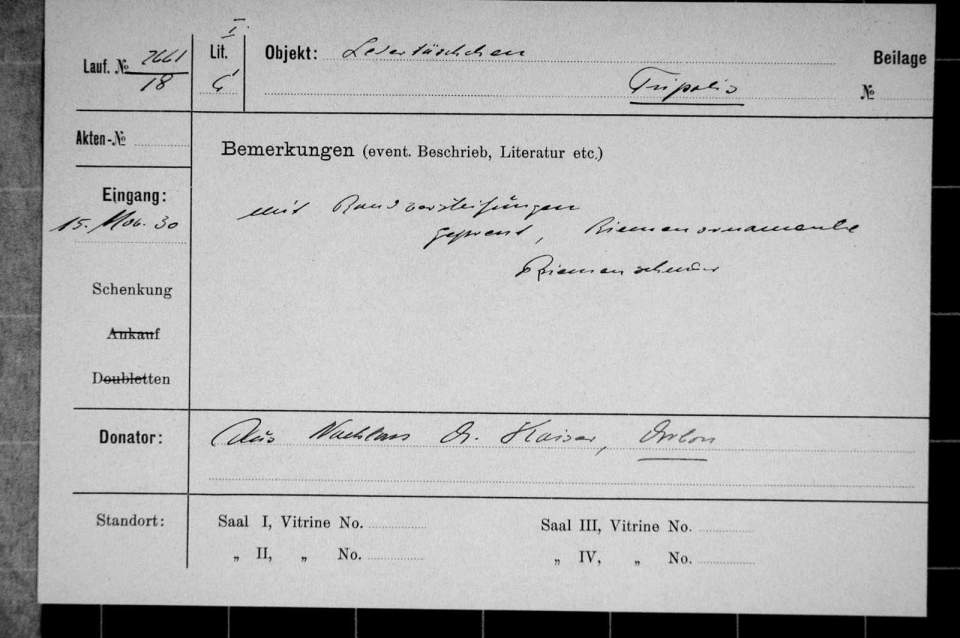 Lauf. № 7661
18
I.
Lit.
Objekt: Ledertäschchen
Tripolis
Beilage
№
Akten-№
Bemerkungen (event. Beschrieb, Literatur etc.)
Eingang:
15. Nov. 30
mit Randversteifungen
gepresst, Riemenornamente
Riemenschnur
Schenkung
Ankauf
Doubletten
Donator: Aus Nachlass Dr. Kaiser,
Standort:
Saal I, Vitrine No.
Saal III, Vitrine No.
„ II, „ No.
„ IV, „ No.